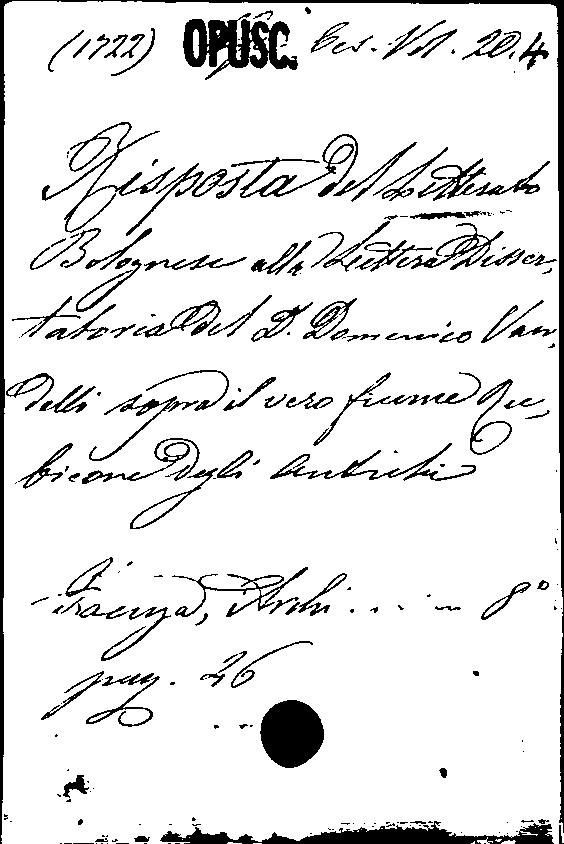 (1722) OPUSC. Ces. Vol. 20.4
Risposta del Letterato
Bolognese alla Lettera Disser,
tatoria del D. Domenico Van,
delli sopra il vero fiume Ru,
bicone degli Antichi
Faenza, Archi . . . . in 8°
pag. 26